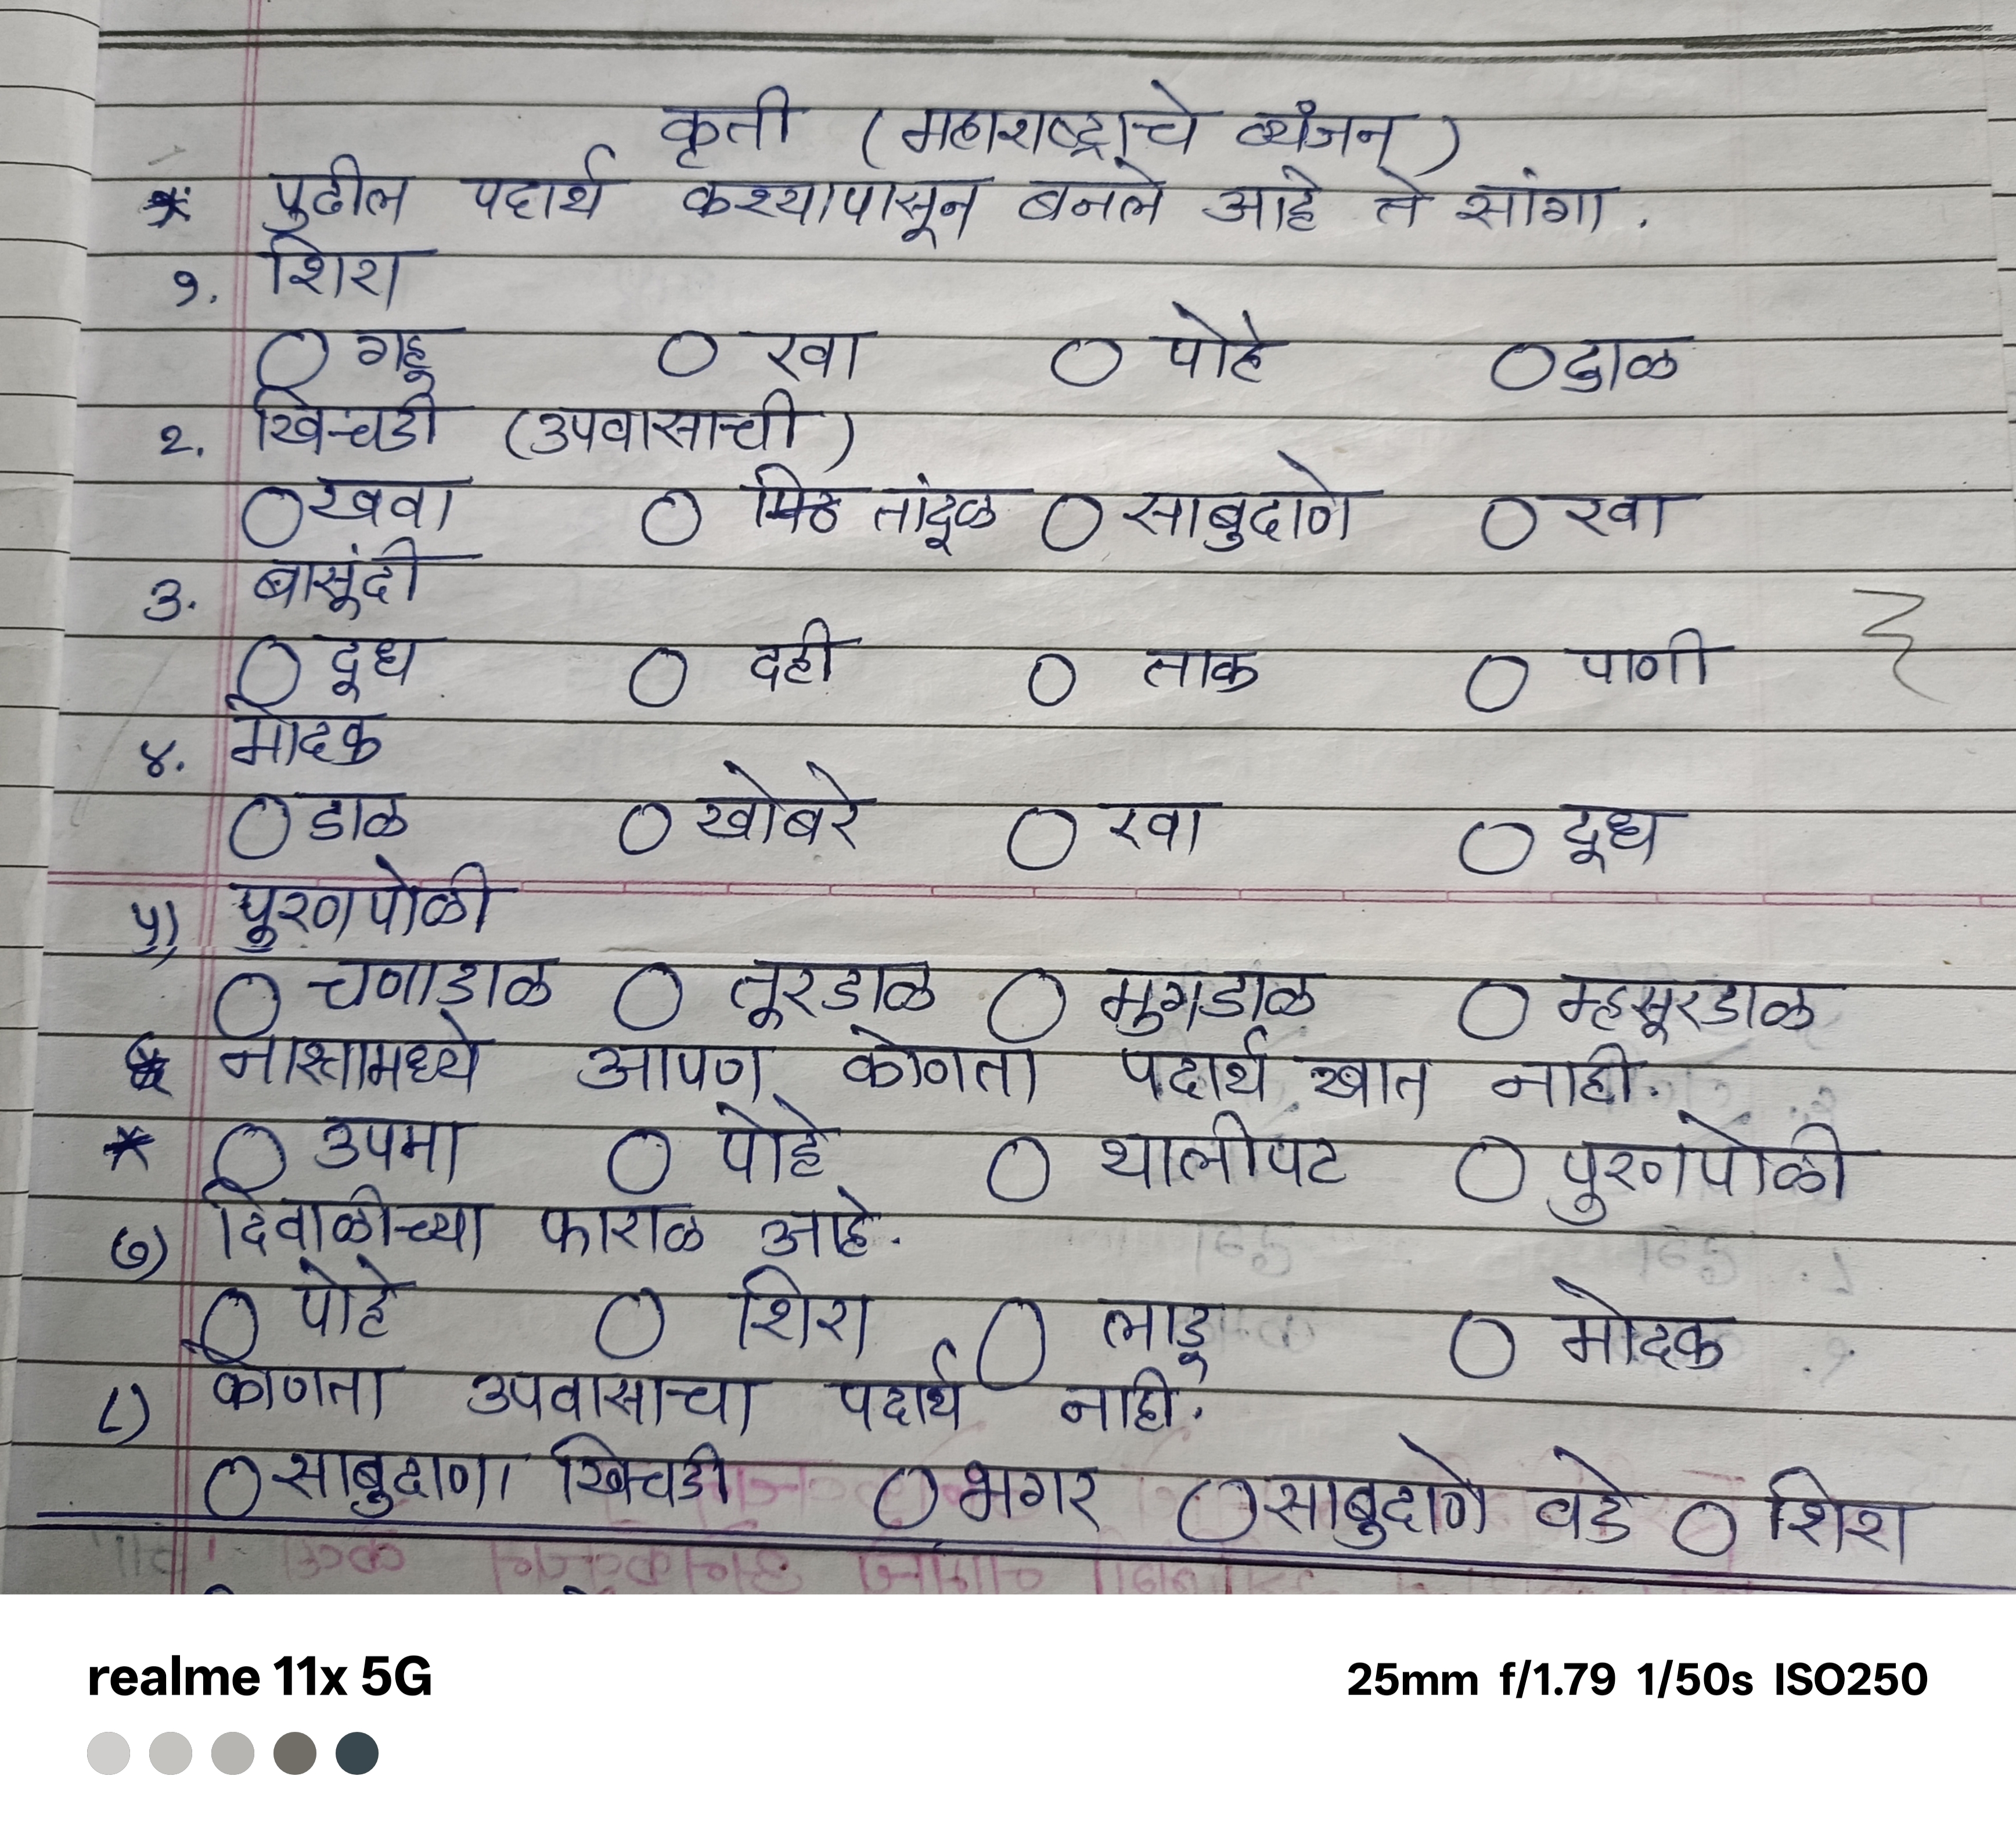 कृती (महाराष्ट्राचे व्यंजन)
* पुढील पदार्थ कश्यापासून बनले आहे ते सांगा.
१. शिरा
गहू रवा पोहे दाळ
२. खिचडी (उपवासाची)
खवा तांदूळ साबुदाणे रवा
३. बासूंदी
दूध दही ताक पाणी
४. मोदक
डाळ खोबरे रवा दूध
५) पुरणपोळी
चणाडाळ तूरडाळ मुगडाळ म्हसूरडाळ
नास्तामध्ये आपण कोणता पदार्थ खात नाही.
* उपमा पोहे थालीपट पुरणपोळी
७) दिवाळीच्या फाराळ आहे.
पोहे शिरा लाडू मोदक
८) कोणता उपवासाचा पदार्थ नाही.
साबुदाणा खिचडी भगर साबुदाणे वडे शिरा
realme 11x 5G
25mm f/1.79 1/50s ISO250